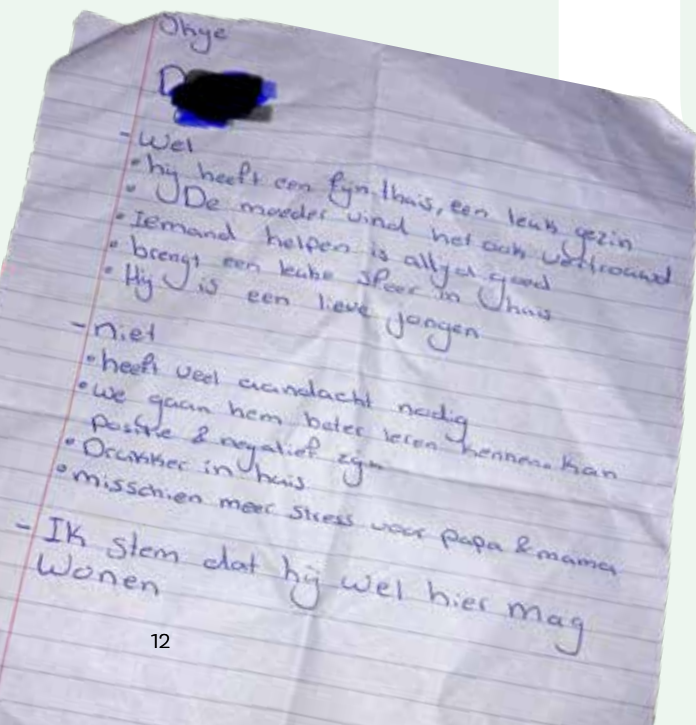 Okye
D
- Wel
• hij heeft een fijn thuis, een leuk gezin
• De moeder vind het ook vertrouwd
• Iemand helpen is altijd goed
• brengt een leuke sfeer in huis
• Hij is een lieve jongen
- niet
• heeft veel aandacht nodig
• we gaan hem beter leren kennen. Kan
positie & negatief zijn
• Drukker in huis
• misschien meer stress voor papa & mama
- Ik stem dat hij wel hier mag
Wonen
12